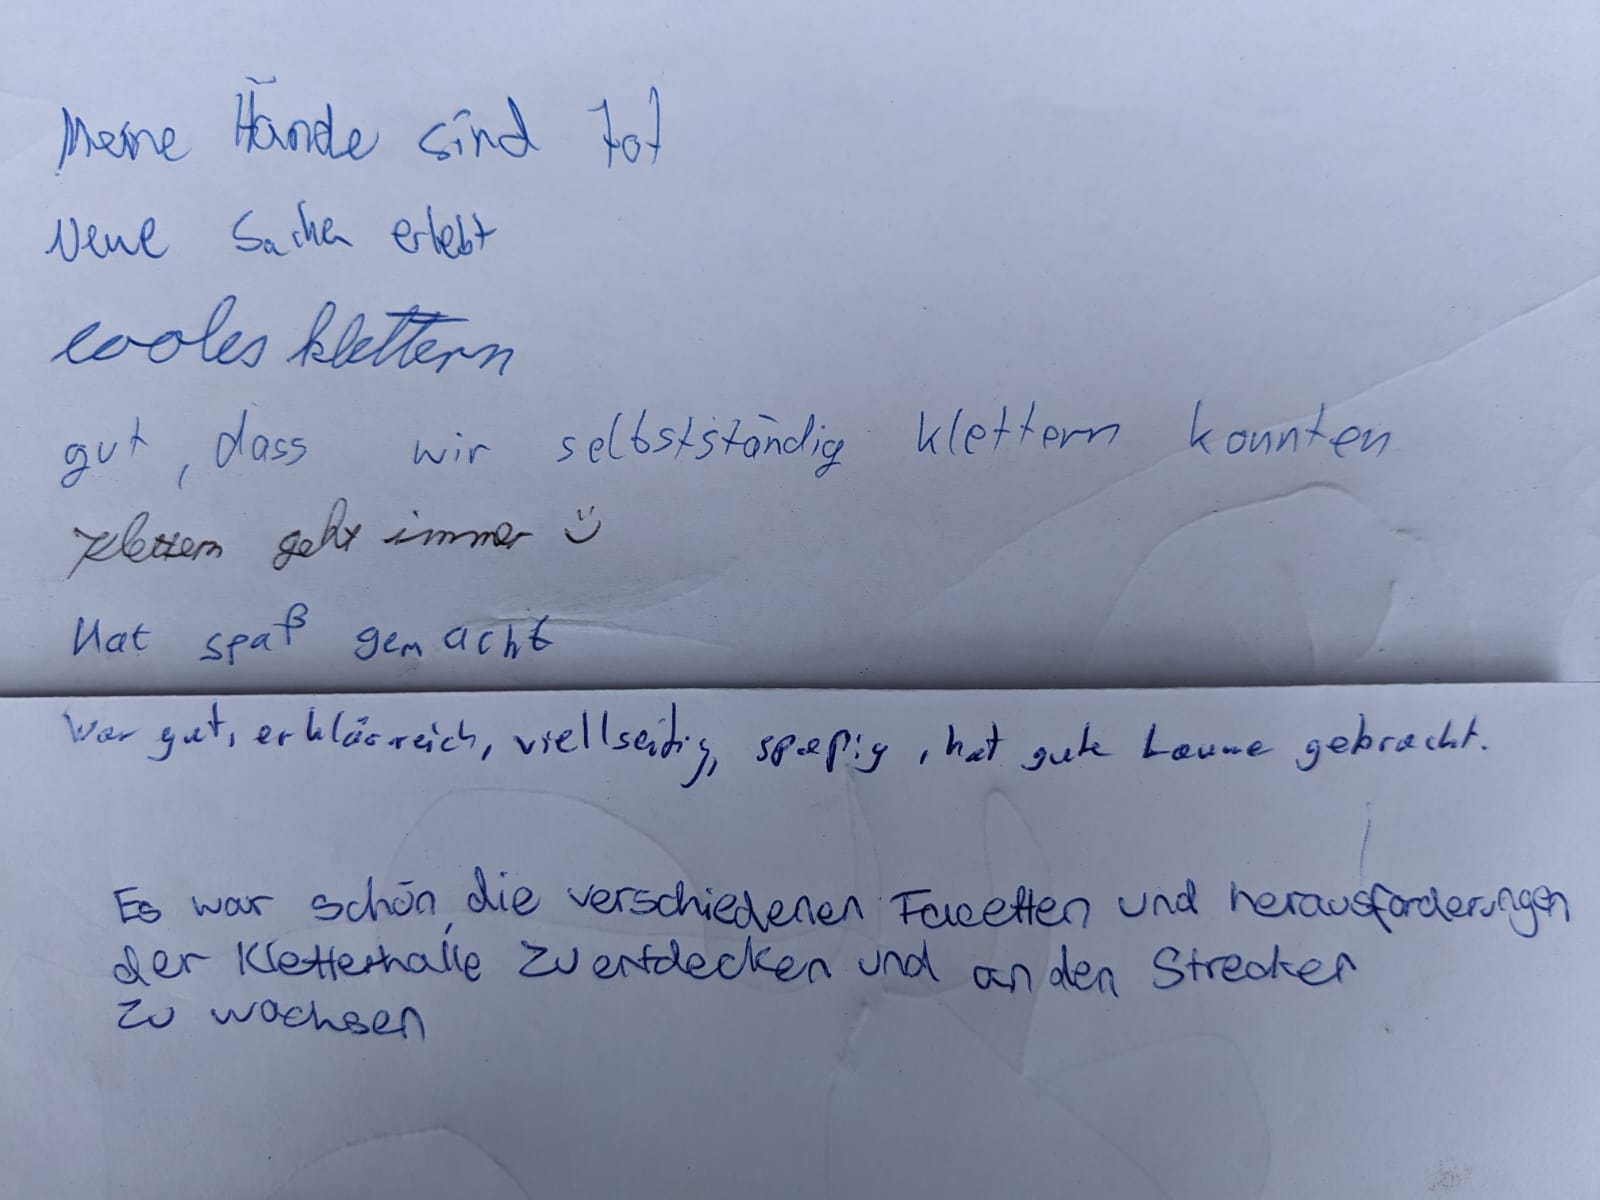 Meine Hände sind tot
Neue Sachen erlebt
cooles klettern
gut, dass wir selbstständig klettern konnten
Klettern geht immer :)
Hat spaß gemacht
War gut, erklärreich, viellseitig, spaßig, hat gute Laune gebracht.
Es war schön die verschiedenen Facetten und herausforderungen
der Kletterhalle zu entdecken und an den Strecken
zu wachsen